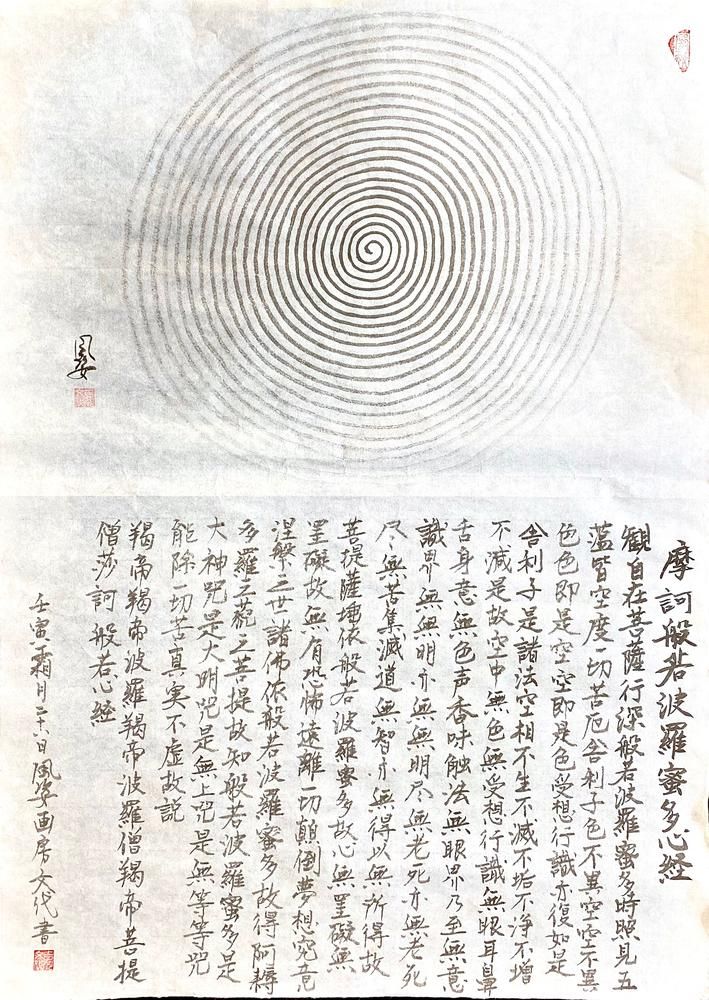 風姿
摩訶般若波羅蜜多心経
観自在菩薩行深般若波羅蜜多時照見五
蘊皆空度一切苦厄舎利子色不異空空不異
色色即是空空即是色受想行識亦復如是
舎利子是諸法空相不生不滅不垢不浄不増
不減是故空中無色無受想行識無眼耳鼻
舌身意無色声香味触法無眼界乃至無意
識界無無明亦無無明尽無老死亦無老死
尽無苦集滅道無智亦無得以無所得故
菩提薩埵依般若波羅蜜多故心無罣礙無
罣礙故無有恐怖遠離一切顛倒夢想究竟
涅槃三世諸佛依般若波羅蜜多故得阿耨
多羅三藐三菩提故知般若波羅蜜多是
大神咒是大明咒是無上咒是無等等咒
能除一切苦真実不虚故説
羯帝羯帝波羅羯帝波羅僧羯帝菩提
僧莎訶 般若心経
壬寅霜月二十日風姿画房文代書